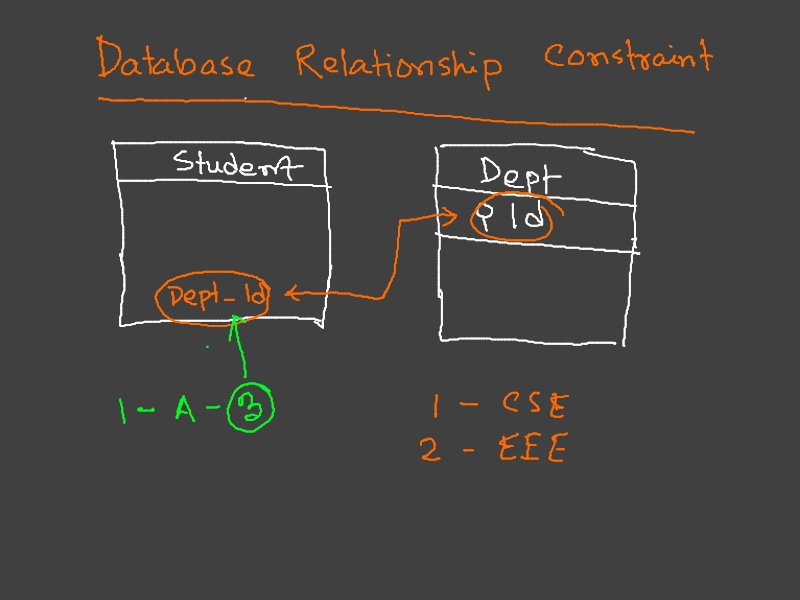 Database Relationship Constraint
Student
Dept
Id
Dept_Id
1 - A - 3
1 - CSE
2 - EEE